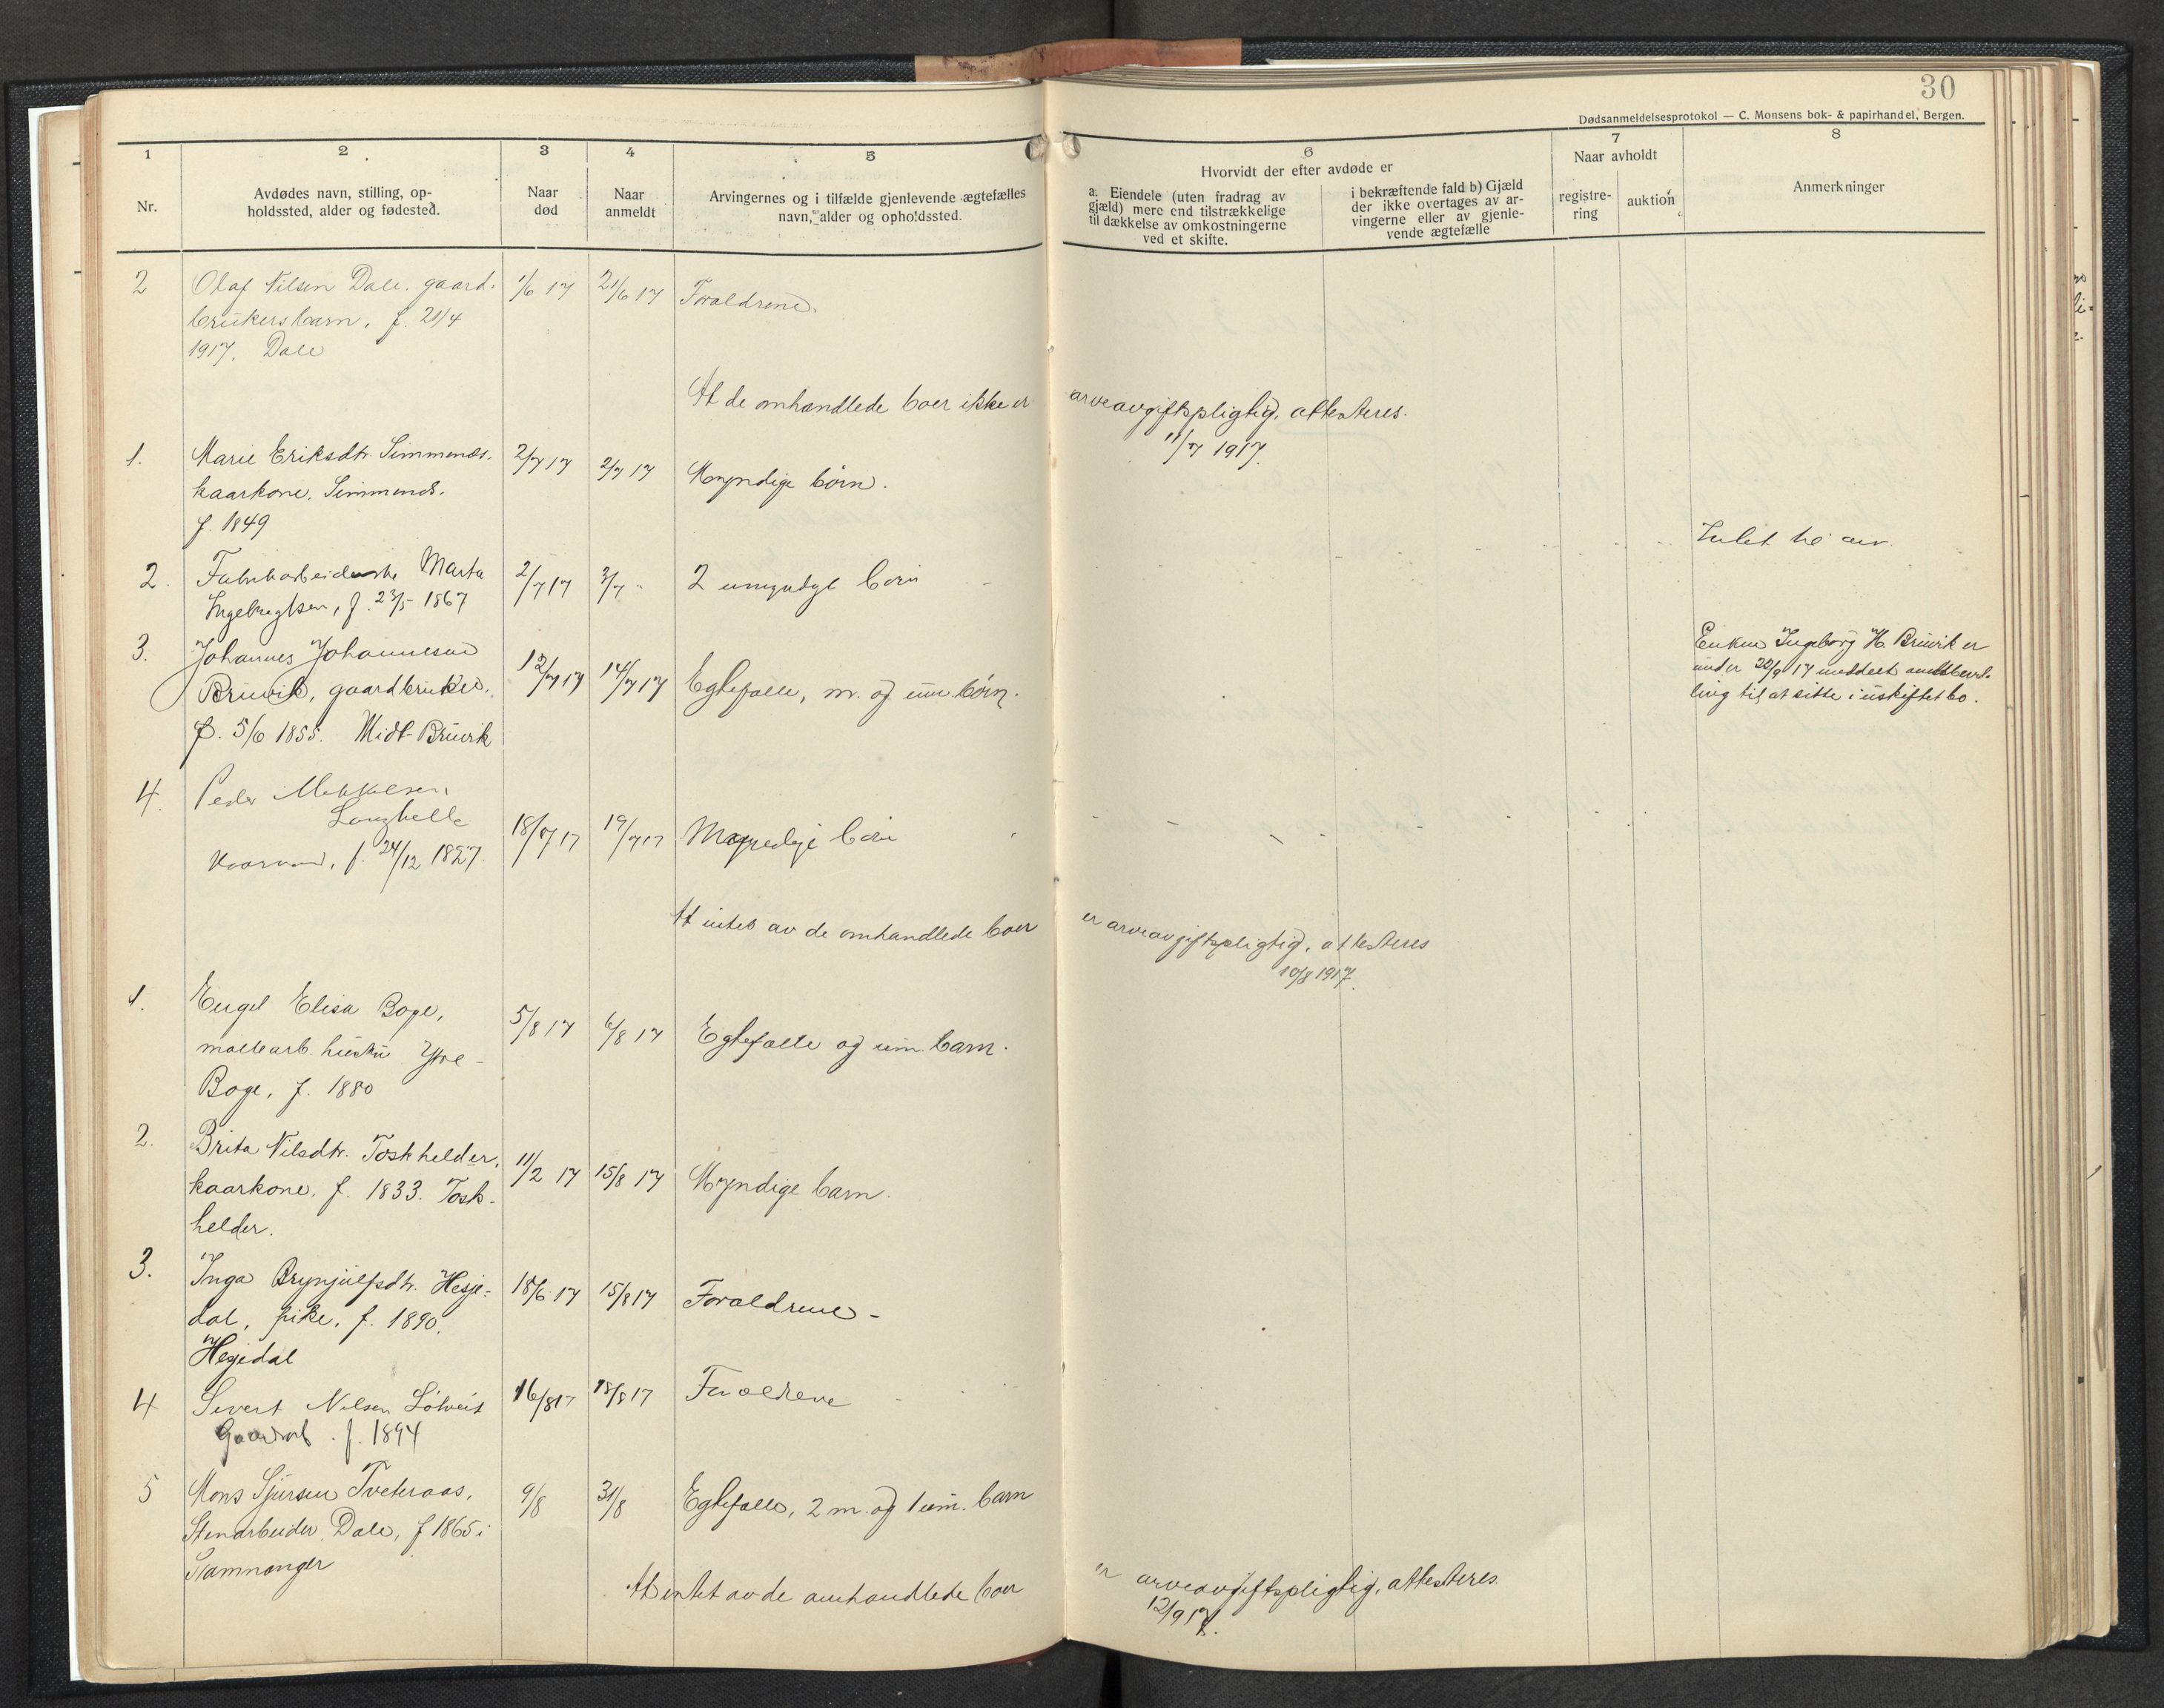 30
Dødsanmeldelsesprotokol — C. Monsens bok- & papirhandel, Bergen.
1
2
3
4
5
6
7
8
Nr.
Avdødes navn, stilling, op-
holdssted, alder og fødested.
Naar
død
Naar
anmeldt
Arvingernes og i tilfælde gjenlevende ægtefælles
navn, alder og opholdssted.
Hvorvidt der efter avdøde er
a. Eiendele (uten fradrag av
gjæld) mere end tilstrækkelige
til dækkelse av omkostningerne
ved et skifte.
i bekræftende fald b) Gjæld
der ikke overtages av ar-
vingerne eller av gjenle-
vende ægtefælle
Naar avholdt
registre-
ring
auktion
Anmerkninger
2 Olaf Nilsen Dale. gaard- 1/6 17 21/6 17 Forældrene.
brukersbarn, f. 21/4
1917. Dale
At de omhandlede boer ikke er arveavgiftspligtig, attesteres.
11/7 1917.
1. Marie Eriksdtr. Simmenes. 2/7 17 2/7 17 Myndige børn.
kaarkone. Simmenes.
f. 1849
2. Fabrikarbeiderske Marta 2/7 17 3/7 " 2 umyndige børn - Intet bo
Ingebrigtsen, f. 23/5 1867
3. Johannes Johannesen 12/7 17 14/7 17 Egtefælle, m. og um. børn.
Bruvik, gaardbruker.
f. 5/6 1855. Midt-Bruvik
Enken Ingeborg H. Bruvik er
under 20/9 17 meddelt
til at sitte i uskiftet bo.
4. Peder Mikkelsen 18/7 17 19/7 17 Myndige børn
Langhelle
Kaarmand, f. 24/12 1827.
At intet av de omhandlede boer er arveavgiftspligtig, attesteres
10/8 1917.
1. Engel Elisa Boge, 5/8 17 6/8 17 Egtefælle og um. barn.
hustru Ytre-
Boge, f. 1880
2. Brita Nilsdtr. Toskhelder, 11/2 17 15/8 17 Myndige barn.
kaarkone, f. 1833. Tosk-
helder.
3. Inga Brynjulfsdtr. Hesje- 18/6 17 15/8 17 Forældrene -
dal, pike, f. 1890.
Hesjedal
4 Sivert Nilsen 16/8 17 18/8 17 Forældrene -
Gaardarb. f. 1894
5 Mons Sjursen Tveteraas, 9/8 31/8 Egtefælle, 2 m. og 1 um. barn
Stenarbeider Dale, f 1865 i
Samnanger
At intet av de omhandlede boer er arveavgiftspligtig, attesteres.
12/9 17.